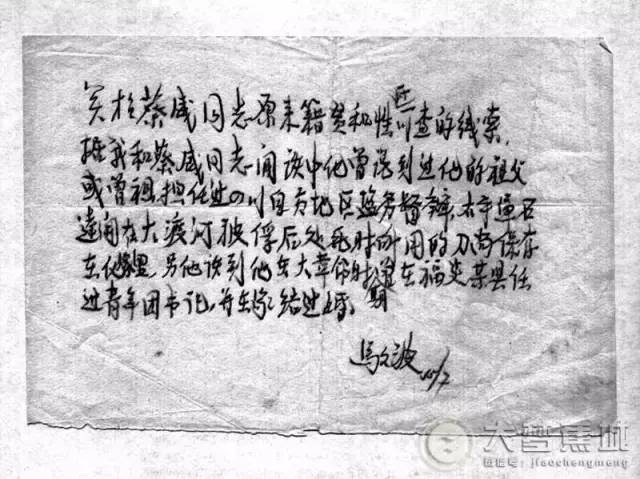 关于蔡威同志原来籍贯和姓氏调查的线索,
据我和蔡威同志闲谈中他曾谈到过他的祖父
或曾祖担任过四川自贡地区盐务督办, 太平军石
达开在大渡河被俘后处死时所用的刀尚保存
在他家里. 另他谈到他在大革命时期曾在福安某县任
过青年团书记, 并在家结过婚.
马文波
大智蕉城
微信号: jiaochengmeng